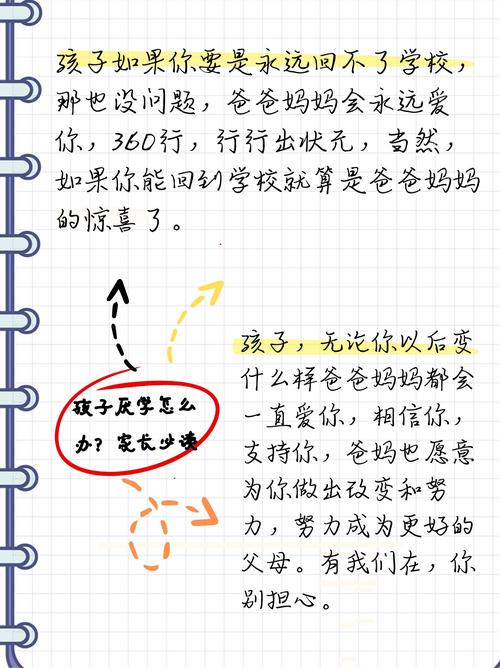 孩子如果你要是永远回不了学校，
那也没问题，爸爸妈妈会永远爱
你，360行，行行出状元，当然，
如果你能回到学校就算是爸爸妈妈
的惊喜了。
孩子厌学怎么
办？家长必读
孩子，无论你以后变
什么样爸爸妈妈都会
一直爱你，相信你，
支持你，爸妈也愿意
为你做出改变和努
力，努力成为更好的
父母。有我们在，你
别担心。